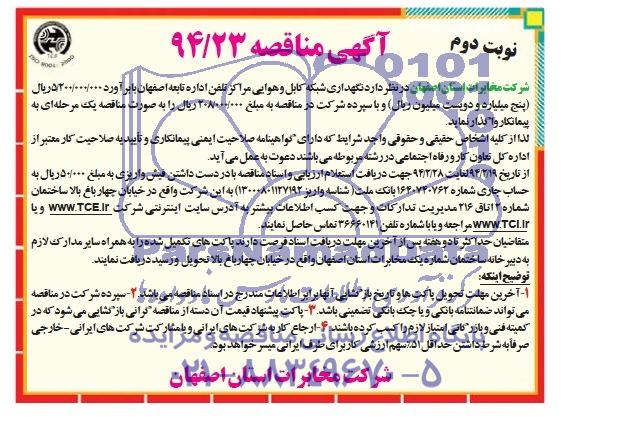 نوبت دوم
آگهی مناقصه ۹۴/۲۳
شرکت مخابرات استان اصفهان در نظر دارد نگهداری شبکه کابل و هوایی مراکز تلفن اداره تابعه اصفهان با برآورد ۵/۲۰۰/۰۰۰/۰۰۰ ریال
(پنج میلیارد و دویست میلیون ریال) و با سپرده شرکت در مناقصه به مبلغ ۲۰۸/۰۰۰/۰۰۰ ریال را به صورت مناقصه یک مرحله‌ای به
پیمانکار واگذار نماید.
لذا از کلیه اشخاص حقیقی و حقوقی واجد شرایط که دارای "گواهینامه صلاحیت ایمنی پیمانکاری و تأییدیه صلاحیت کار معتبر از
اداره کل تعاون کار و رفاه اجتماعی در رشته مربوطه می باشند دعوت به عمل می آید.
از تاریخ ۹۴/۲/۱۹ لغایت ۹۴/۲/۲۸ جهت دریافت استعلام ارزیابی و اسناد مناقصه با در دست داشتن فیش واریزی به مبلغ ۵۰۰/۰۰۰ ریال به
حساب جاری شماره ۱۶۴۰۷۴۰۷۶۲ بانک ملت (شناسه واریز ۱۳۰۰۰۸۰۱۱۲۷۱۹۲) به این شرکت واقع در خیابان چهارباغ بالا ساختمان
شماره ۲ اتاق ۲۱۶ مدیریت تدارکات و جهت کسب اطلاعات بیشتر به آدرس سایت اینترنتی شرکت www.TCE.ir و یا
www.TCI.ir مراجعه و یا با شماره تلفن ۳۶۶۶۰۱۴۱ تماس حاصل نمایند.
متقاضیان حداکثر تا دو هفته پس از آخرین مهلت دریافت اسناد فرصت دارند پاکت های تکمیل شده را به همراه سایر مدارک لازم
به دبیرخانه ساختمان شماره یک مخابرات استان اصفهان واقع در خیابان چهارباغ بالا تحویل و رسید دریافت نمایند.
توضیح اینکه:
۱- آخرین مهلت تحویل پاکت ها و تاریخ بازگشایی آنها برابر اطلاعات مندرج در اسناد مناقصه می باشد. ۲- سپرده شرکت در مناقصه
می تواند ضمانتنامه بانکی و یا چک بانکی تضمینی باشد. ۳- پاکت پیشنهاد قیمت آن دسته از مناقصه "گرانی بازگشایی می شود که در
کمیته فنی و بازرگانی امتیاز لازم را کسب کرده باشند. ۴- ارجاع کار به شرکت های ایرانی و یا مشارکت شرکت های ایرانی - خارجی
صرفا به شرط داشتن حداقل ۵۱٪ سهم ارزشی کار برای طرف ایرانی میسر خواهد بود.
شرکت مخابرات استان اصفهان
پایگاه اطلاع رسانی مناقصه و مزایده
۰۲۱-۸۸۳۴۹۶۷۰-۵